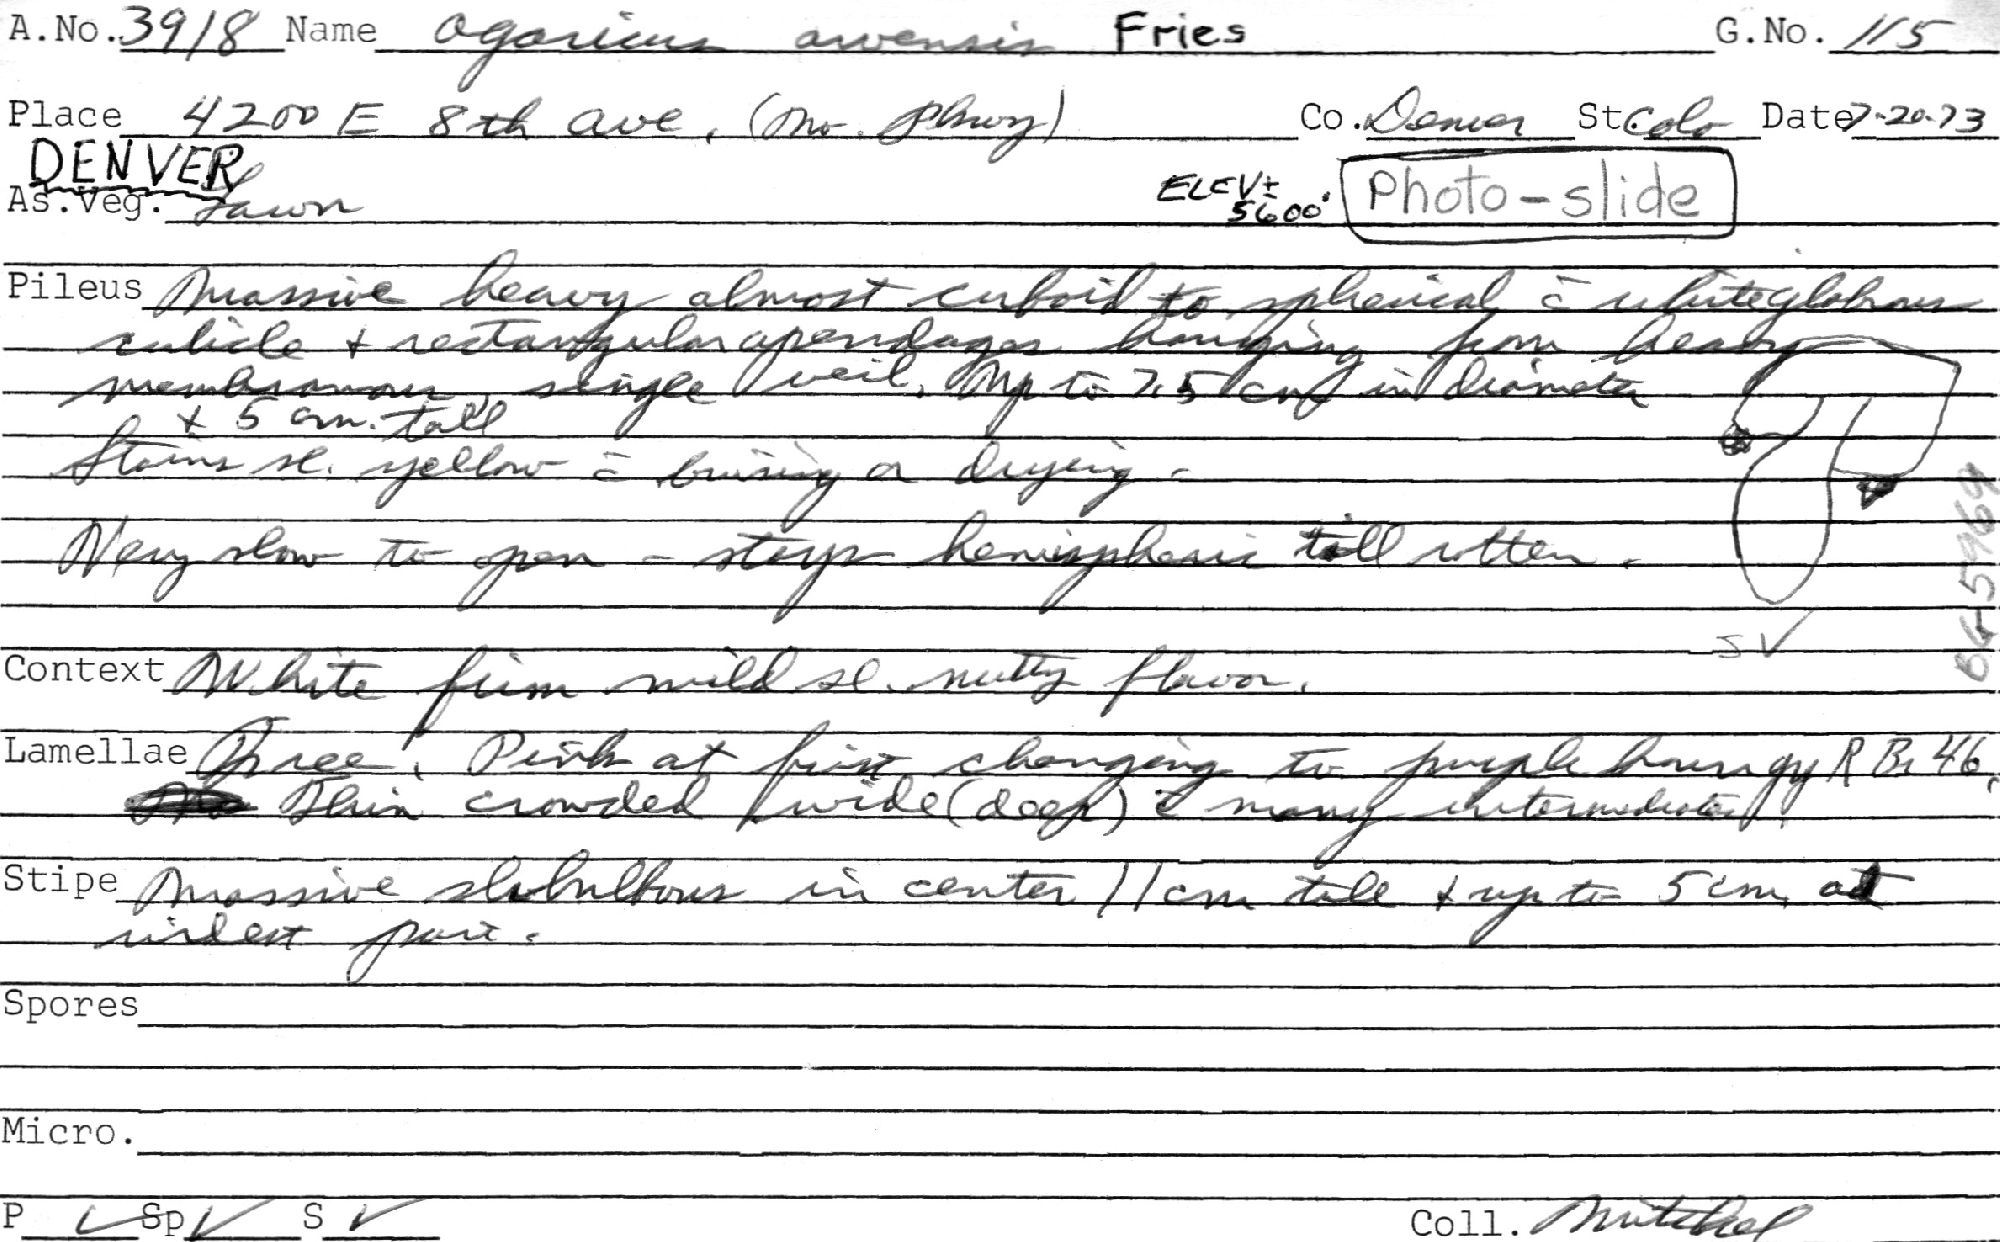 A.No. 3918 Name Agaricus arvensis Fries G.No. 115
Place 4200 E 8th Ave, (Mo. Pkwy) Co. Denver St. Colo Date 7-20-73
DENVER
As.Veg. Lawn ELEV± 5600' Photo-slide
Pileus Massive heavy almost cuboid to spherical c̄ white glabrous
cuticle + rectangular apendages hanging from heavy
membranous single veil. Up to 7.5 cm in diameter
+ 5 cm. tall
Stains sl. yellow c̄ brusing or drying.
Very slow to open - stays hemispheric till rotten.
S ✓
Context White firm mild sl. nutty flavor.
Lamellae Free. Pink at first changing to purple brown gy R Br 46.
Thin crowded wide (deep) c̄ many intermediates.
Stipe Massive sl bulbous in center 11 cm tall + up to 5 cm at
widest part.
Spores
Micro.
P ✓ Sp ✓ S ✓ Coll. Mitchel